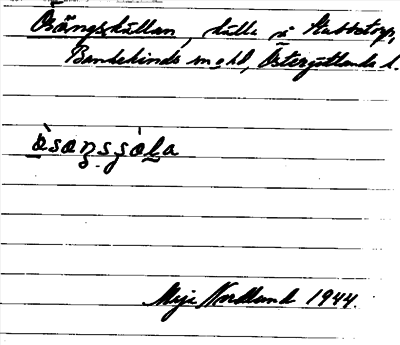 Ösängskällan, källa i Stubbetorp,
Bankekinds sn o hd, Östergötlands l.
ò̱saŋsʂàḻa
Maja Nordlund 1944.